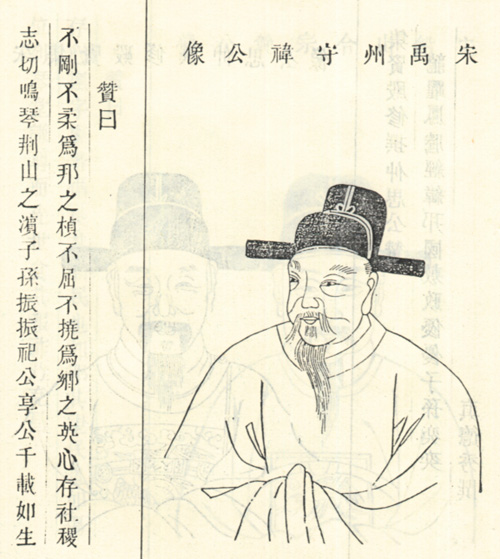 宋禹州守禕公像
贊曰
不剛不柔爲邦之楨不屈不撓爲鄉之英心存社稷
志切鳴琴荆山之濱子孫振振祀公享公千載如生